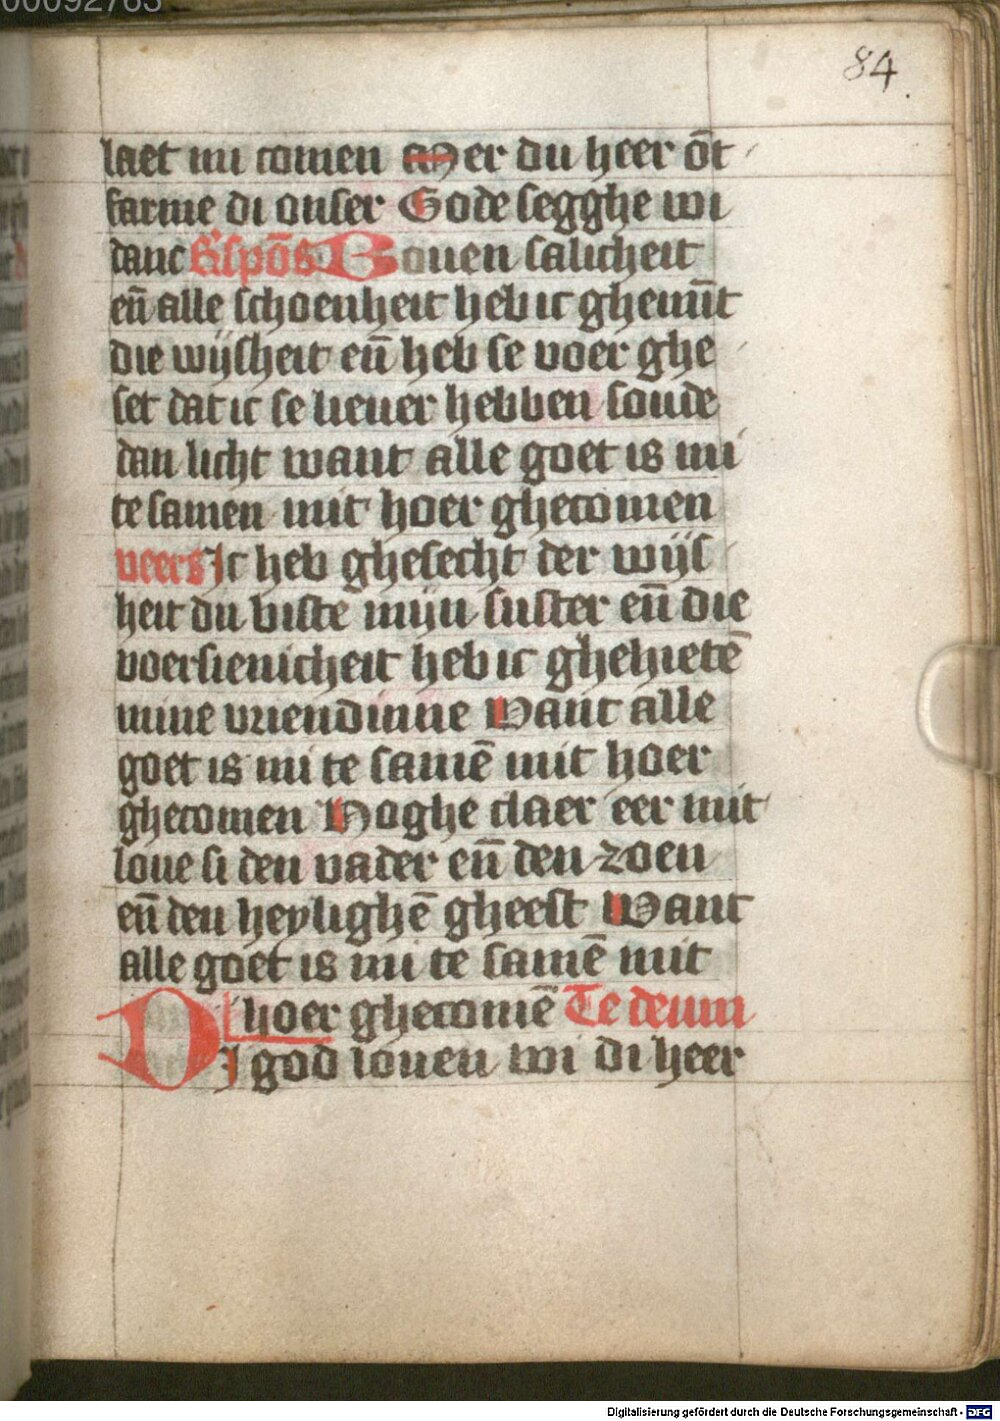 00092763
84.
laet mi comen Mer du heer ōt
farme di onser Gode segghe wi
danc R̄spōs Bouen salicheit
en̄ alle schoenheit heb ic ghemīt
die wijsheit en̄ heb se voer ghe
set dat ic se lieuer hebben soude
dan licht want alle goet is mi
te samen mit hoer ghecomen
veers Ic heb ghesecht der wijs
heit du biste mijn suster en̄ die
voersienicheit heb ic ghehietē
mine vriendinne Want alle
goet is mi te samē mit hoer
ghecomen Hoghe claer eer mit
loue si den vader en̄ den zoen
en̄ den heylighē gheest Want
alle goet is mi te samē mit
hoer ghecomē Te deum
DI god louen wi di heer
Digitalisierung gefördert durch die Deutsche Forschungsgemeinschaft - DFG